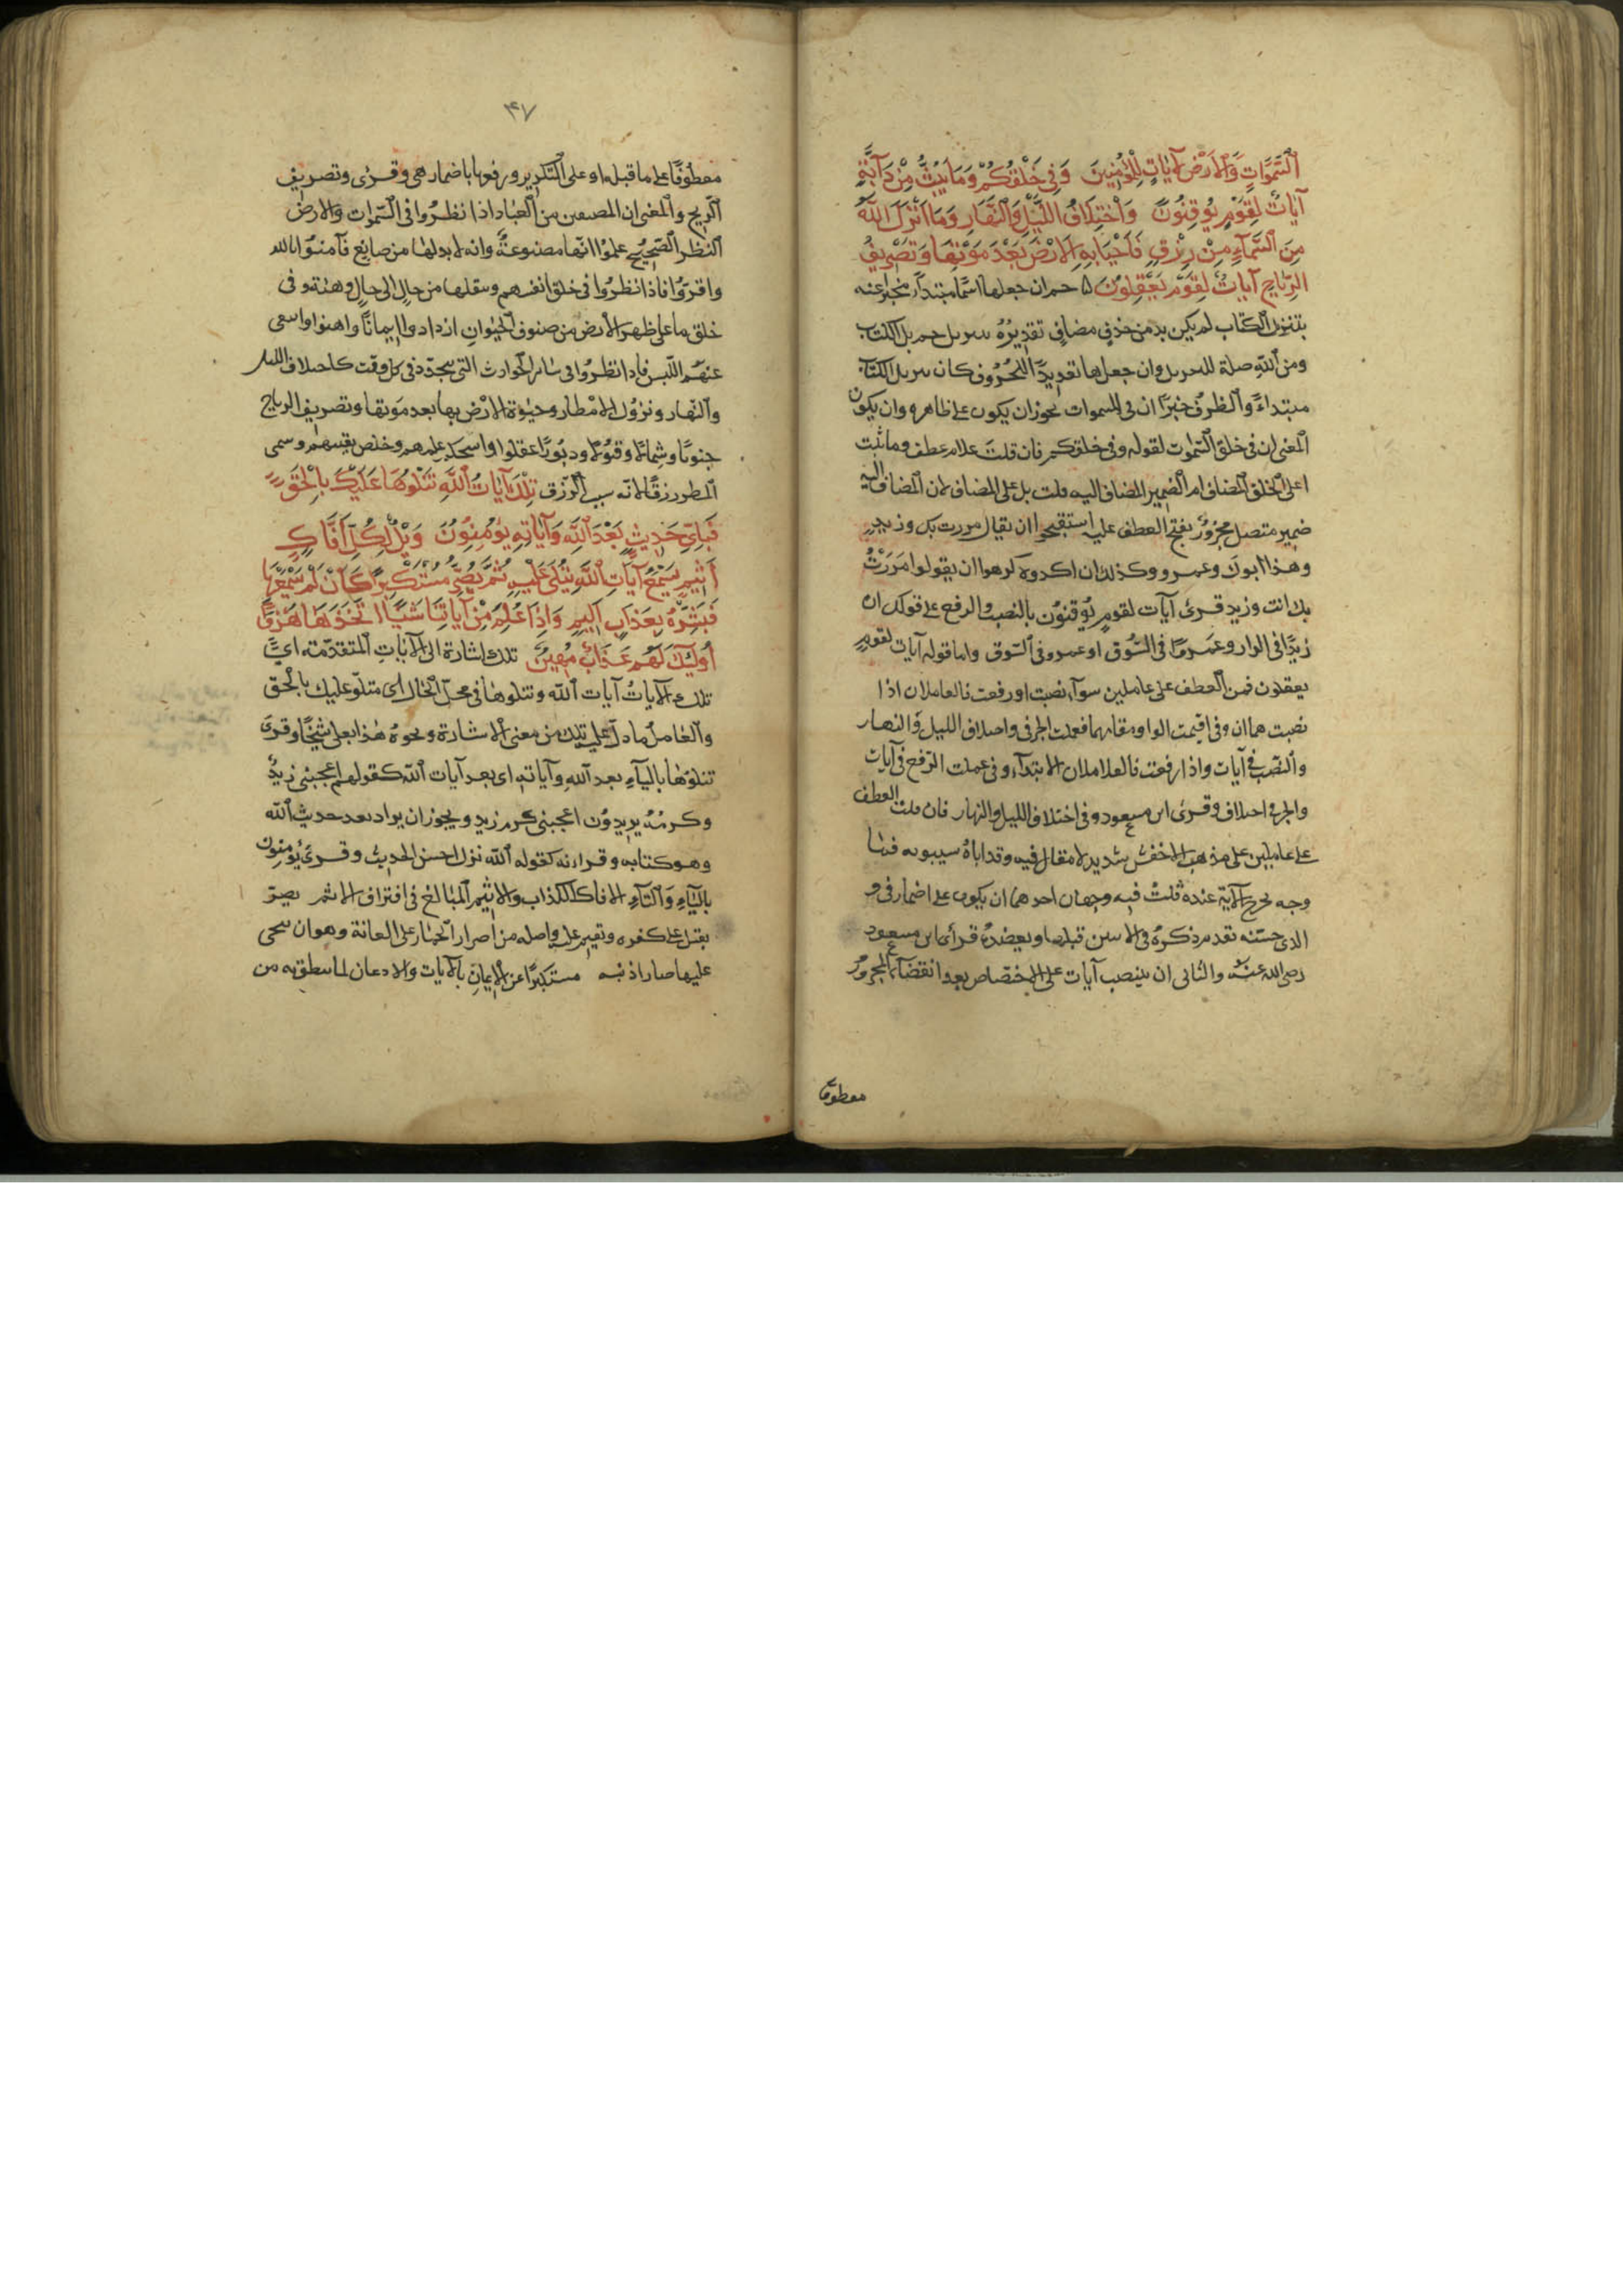 ٱلسَّمٰوَاتِ وَٱلْاَرْضِ لَاٰيَاتٍ لِلْمُؤْمِنِينَ وَفِي خَلْقِكُمْ وَمَا يَبُثُّ مِنْ دَآبَّةٍ
آيَاتٌ لِقَوْمٍ يُوقِنُونَ وَاخْتِلَافِ اللَّيْلِ وَالنَّهَارِ وَمَا اَنْزَلَ اللّٰهُ
مِنَ السَّمَآءِ مِنْ رِزْقٍ فَاَحْيَا بِهِ الْاَرْضَ بَعْدَ مَوْتِهَا وَتَصْرِيفِ
الرِّيَاحِ آيَاتٌ لِقَوْمٍ يَعْقِلُونَ حم ان جعلها اسمًا مبتدأ مخبرا عنه
بتنزيل الكتاب لم يكن بد من حذف مضاف تقديره تنزيل حم تنزيل الكتاب
ومن الله صلة للتنزيل وان جعلها تعديدًا للحروف كان تنزيل الكتاب
مبتداءً والظرف خبرًا ان فى السموات يجوز ان يكون على ظاهره وان يكون
المعنى ان فى خلق السموات لقوله وفى خلقكم فان قلت علام عطف وما يبث
اعلى الخلق المضاف ام الضمير المضاف اليه قلت بل على المضاف لان المضاف اليه
ضمير متصل مجرور يقبح العطف عليه استقبحوا ان يقال مررت بك وزيد
وهذا ابوك وعمرو وكذلك ان اكدوه كرهوا ان يقولوا مررت
بك انت وزيد قرئ آيات لقوم يوقنون بالنصب والرفع على قولك ان
زيدًا فى الدار وعمرًوا فى السوق او عمرو فى السوق واما قوله آيات لقوم
يعقلون فمن العطف على عاملين سوآء نصبت او رفعت فالعاملان اذا
نصبت هما ان وفى اقيمت الواو مقامهما فعملت الجر فى واختلاف الليل والنهار
والنصب فى آيات واذا رفعت فالعاملان الابتدآء وفى عملت الرفع فى آيات
والجر فى اختلاف وقرئ ابن مسعود وفى اختلاف الليل والنهار فان قلت العطف
على عاملين على مذهب الاخفش سديد لا مقال فيه وقد اباه سيبويه فما
وجه تخريج الآية عنده قلت فيه وجهان احدهما ان يكون على اضمار فى و
الذى حسنه تقدم ذكره فى الآيتين قبلها ويعضده قرأة ابن مسعود
رضى الله عنه والثانى ان ينتصب آيات على الاختصاص بعد انقضآء المجرور
معطوفا
٤٧
معطوفًا على ما قبله او على التكرير ورفعها باضمار هى وقرئ وتصريف
الريح والمعنى ان المنصفين من العباد اذا نظروا فى السموات والارض
النظر الصحيح علموا انها مصنوعة وانه لا بد لها من صانع فآمنوا بالله
واقروا فاذا نظروا فى خلق انفسهم وتنقلها من حال الى حال وهيئة وفى
خلق ما على ظهر الارض من صنوف الحيوان ازدادوا ايمانًا وايقنوا وانتفى
عنهم اللبس فاذا نظروا فى سائر الحوادث التى تتجدد فى كل وقت كاختلاف الليل
والنهار ونزول الامطار وحيوة الارض بها بعد موتها وتصريف الرياح
جنوبًا وشمالًا وقبولًا ودبورًا عقلوا واستحكم علمهم وخلص يقينهم وسمى
المطر رزقًا لانه سبب الرزق تِلْكَ آيَاتُ اللّٰهِ نَتْلُوهَا عَلَيْكَ بِالْحَقِّ
فَبِاَىِّ حَدِيثٍ بَعْدَ اللّٰهِ وَآيَاتِهِ يُؤْمِنُونَ وَيْلٌ لِكُلِّ اَفَّاكٍ
اَثِيمٍ يَسْمَعُ آيَاتِ اللّٰهِ تُتْلَى عَلَيْهِ ثُمَّ يُصِرُّ مُسْتَكْبِرًا كَاَنْ لَمْ يَسْمَعْهَا
فَبَشِّرْهُ بِعَذَابٍ اَلِيمٍ وَاِذَا عَلِمَ مِنْ آيَاتِنَا شَيْئًا اتَّخَذَهَا هُزُوًا
اُولَئِكَ لَهُمْ عَذَابٌ مُهِينٌ تلك اشارة الى الآيات المتقدمة اى
تلك الآيات آيات الله ونتلوها فى محل الحال اى متلوة عليك بالحق
والعامل ما دل عليه تلك من معنى الاشارة ونحوه هذا بعلى شيخًا وقرئ
يتلوها باليآء بعد الله وآياته اى بعد آيات الله كقولهم اعجبنى زيد
وكرمه يريدون اعجبنى كرم زيد ويجوز ان يراد بعد حديث الله
وهو كتابه وقرانه كقوله الله نزل احسن الحديث وقرئ يؤمنون
باليآء والتآء الافاك الكذاب والاثيم المبالغ فى اقتراف الاثم يصر
يقبل على كفره ويقيم عليه واصله من اصرار الحمار على العانة وهو ان ينحى
عليها صارا اذنيه مستكبرًا عن الايمان بالآيات والاذعان لما ينطق به من